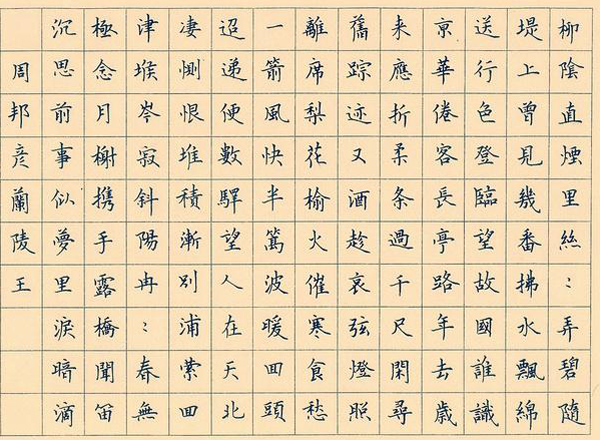 柳陰直煙里絲：弄碧隨
堤上曾見幾番拂水飄綿
送行色登臨望故國誰識
京華倦客長亭路年去歲
来應折柔条過千尺閑尋
舊踪迹又酒趁哀弦燈照
離席梨花榆火催寒食愁
一箭風快半篙波暖囬頭
迢递便數驛望人在天北
淒惻恨堆積漸別浦縈囬
津堠岑寂斜陽冉：春無
極念月榭携手露橋聞笛
沉思前事似夢里淚暗滴
周邦彥蘭陵王